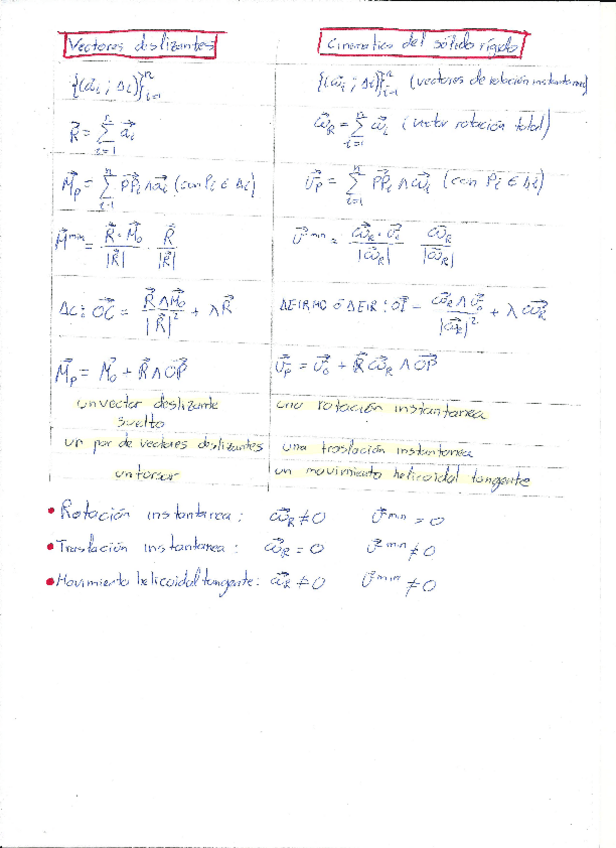 Vectores deslizantes | Cinematica del sólido rígido
{(a⃗ᵢ ; Δi)}ⁿᵢ₌₁ | {(ω⃗ᵢ ; Δi)}ⁿᵢ₌₁ (vectores de rotación instantanea)
R⃗ = Σⁿᵢ₌₁ a⃗ᵢ | ω⃗_R = Σⁿᵢ₌₁ ω⃗ᵢ (vector rotación total)
M⃗_P = Σⁿᵢ₌₁ PP⃗ᵢ ∧ a⃗ᵢ (con Pᵢ ∈ Δi) | v⃗_P = Σⁿᵢ₌₁ PP⃗ᵢ ∧ ω⃗ᵢ (con Pᵢ ∈ Δi)
M⃗ᵐⁱⁿ = (R⃗ · M⃗₀)/|R⃗| · R⃗/|R⃗| | v⃗ᵐⁱⁿ = (ω⃗_R · v⃗₀)/|ω⃗_R| ω⃗_R/|ω⃗_R|
ΔC: OC⃗ = (R⃗ ∧ M⃗₀)/|R⃗|² + λR⃗ | ΔEIRMG ó ΔEIR: OI⃗ = (ω⃗_R ∧ v⃗₀)/|ω⃗_R|² + λ ω⃗_R
M⃗_P = M⃗₀ + R⃗ ∧ OP⃗ | v⃗_P = v⃗₀ + ω⃗_R ∧ OP⃗
un vector deslizante | una rotación instantanea
suelto
un par de vectores deslizantes | una traslación instantanea
un torsor | un movimiento helicoidal tangente
• Rotación instantanea: ω⃗_R ≠ 0 v⃗ᵐⁱⁿ = 0
• Traslación instantanea: ω⃗_R = 0 v⃗ᵐⁱⁿ ≠ 0
• Movimiento helicoidal tangente: ω⃗_R ≠ 0 v⃗ᵐⁱⁿ ≠ 0